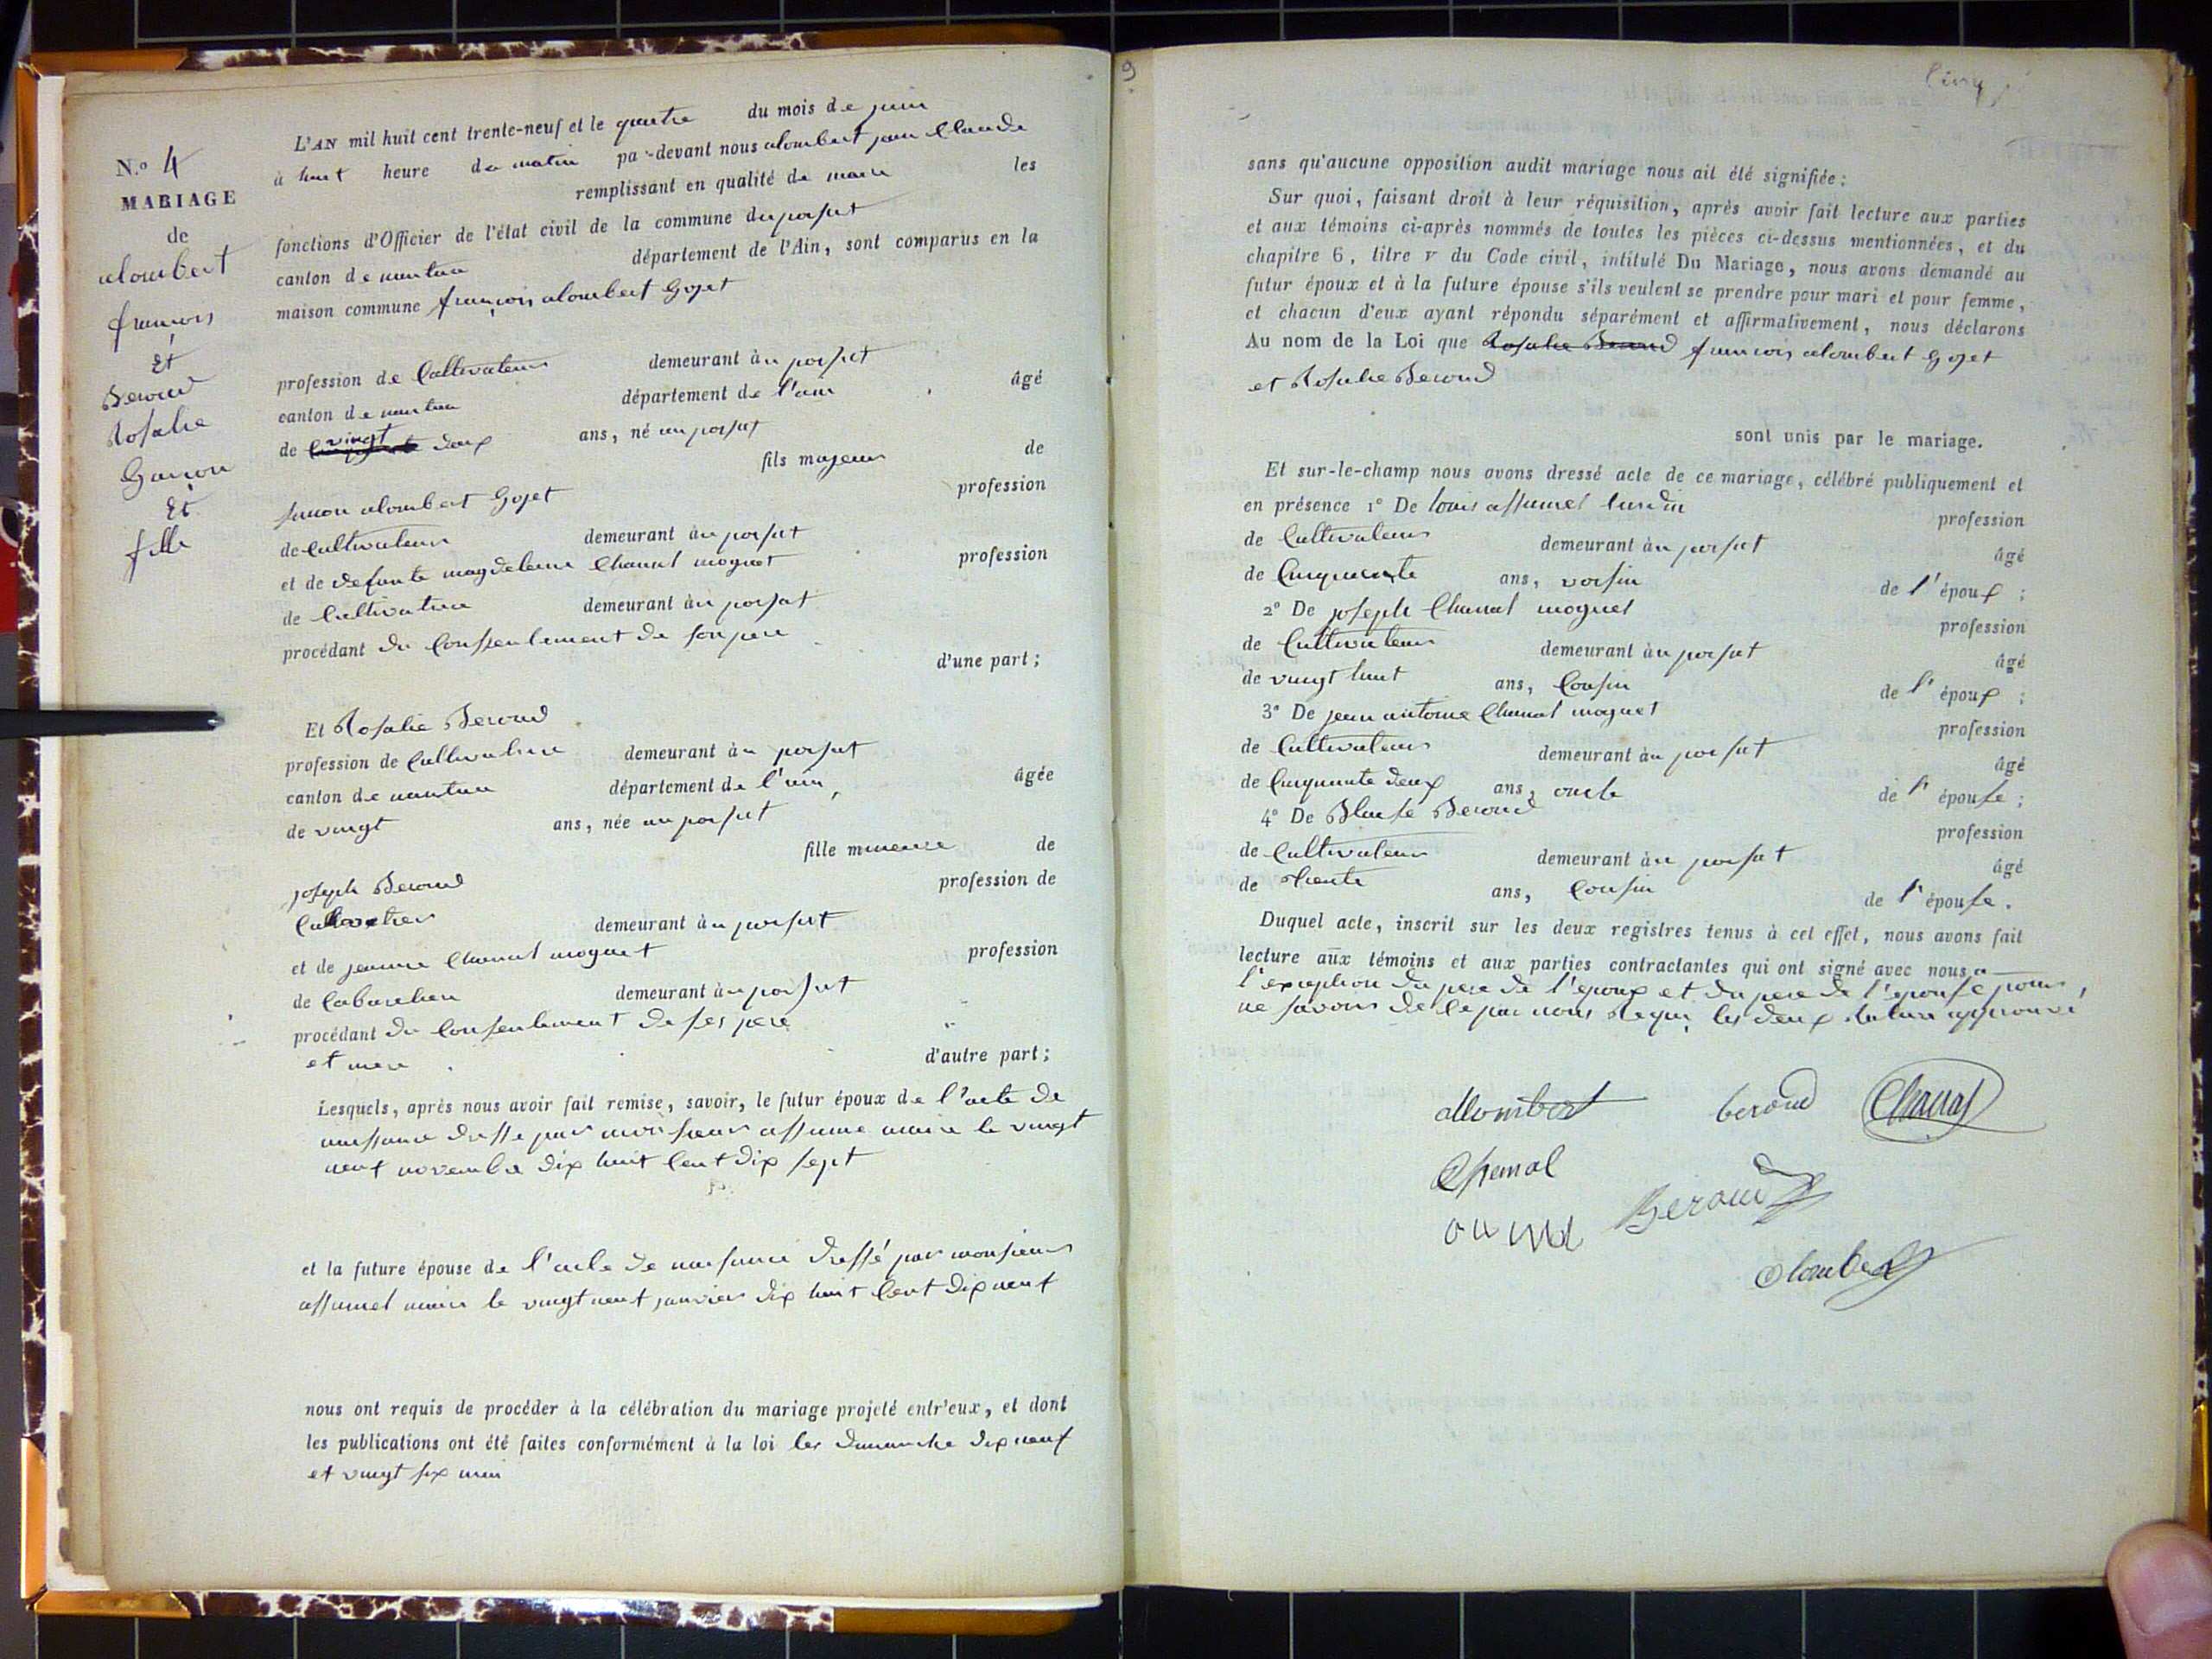 N.o 4
MARIAGE
de
alombert
françois
Et
Beroud
Rosalie
Garçon
Et
fille
L'AN mil huit cent trente-neuf et le quatre du mois de juin
à huit heure du matin par-devant nous alombert jean Claude
remplissant en qualité de maire les
fonctions d'Officier de l'état civil de la commune du poisat
canton de nantua département de l'Ain, sont comparus en la
maison commune françois alombert Gojet
profession de Cultivateur demeurant àu poisat
canton de nantua département de l'ain âgé
de vingt deux ans, né au poisat
fils majeur de
simon alombert Gojet profession
de Cultivateur demeurant àu poisat
et de defunte magdeleine Chanal moguet profession
de Cultivatrice demeurant àu poisat
procédant du Conssentement de son pere
d'une part;
Et Rosalie Beroud
profession de Cultivatrice demeurant àu poisat
canton de nantua département de l'ain, âgée
de vingt ans, née au poisat
fille mineure de
joseph Beroud profession de
demeurant àu poisat
et de jeanne Chanal moguet profession
de Cabaretiere demeurant àu poisat
procédant du Consentement de ses pere
et mere d'autre part;
Lesquels, après nous avoir fait remise, savoir, le futur époux de l'acte de
naissance dressé par monsieur assume maire le vingt
neuf novembre dix huit Cent dix sept
et la future épouse de l'acte de naissance dressé par monsieur
assumel maire le vingt neuf janvier dix huit Cent dix neuf
nous ont requis de procéder à la célébration du mariage projeté entr'eux, et dont
les publications ont été faites conformément à la loi les dimanche dix neuf
et vingt six mai
9
sans qu'aucune opposition audit mariage nous ait été signifiée:
Sur quoi, faisant droit à leur réquisition, après avoir fait lecture aux parties
et aux témoins ci-après nommés de toutes les pièces ci-dessus mentionnées, et du
chapitre 6, titre v du Code civil, intitulé Du Mariage, nous avons demandé au
futur époux et à la future épouse s'ils veulent se prendre pour mari et pour femme,
et chacun d'eux ayant répondu séparément et affirmativement, nous déclarons
Au nom de la Loi que Rosalie Beroud françois alombert gojet
et Rosalie Beroud
sont unis par le mariage.
Et sur-le-champ nous avons dressé acte de ce mariage, célébré publiquement et
en présence 1o De louis assumel lurdin profession
de Cultivateur demeurant àu poisat âgé
de Cinquante ans, voisin de l'époux;
2o De joseph Chanal moguet profession
de Cultivateur demeurant àu poisat âgé
de vingt huit ans, Cousin de l'époux;
3o De jean antoine Chanal moguet profession
de Cultivateur demeurant àu poisat âgé
de Cinquante deux ans, oncle de l'épouse;
4o De Blaise Beroud profession
de Cultivateur demeurant àu poisat âgé
de trente ans, Cousin de l'épouse.
Duquel acte, inscrit sur les deux registres tenus à cet effet, nous avons fait
lecture aux témoins et aux parties contractantes qui ont signé avec nous a
l'exception du pere de l'epoux et du pere de l'epouse pour
ne savoir de ce par nous Requi les deux Rature approuvé
allombert beroud Chanal
Chanal
Beroud
alombert